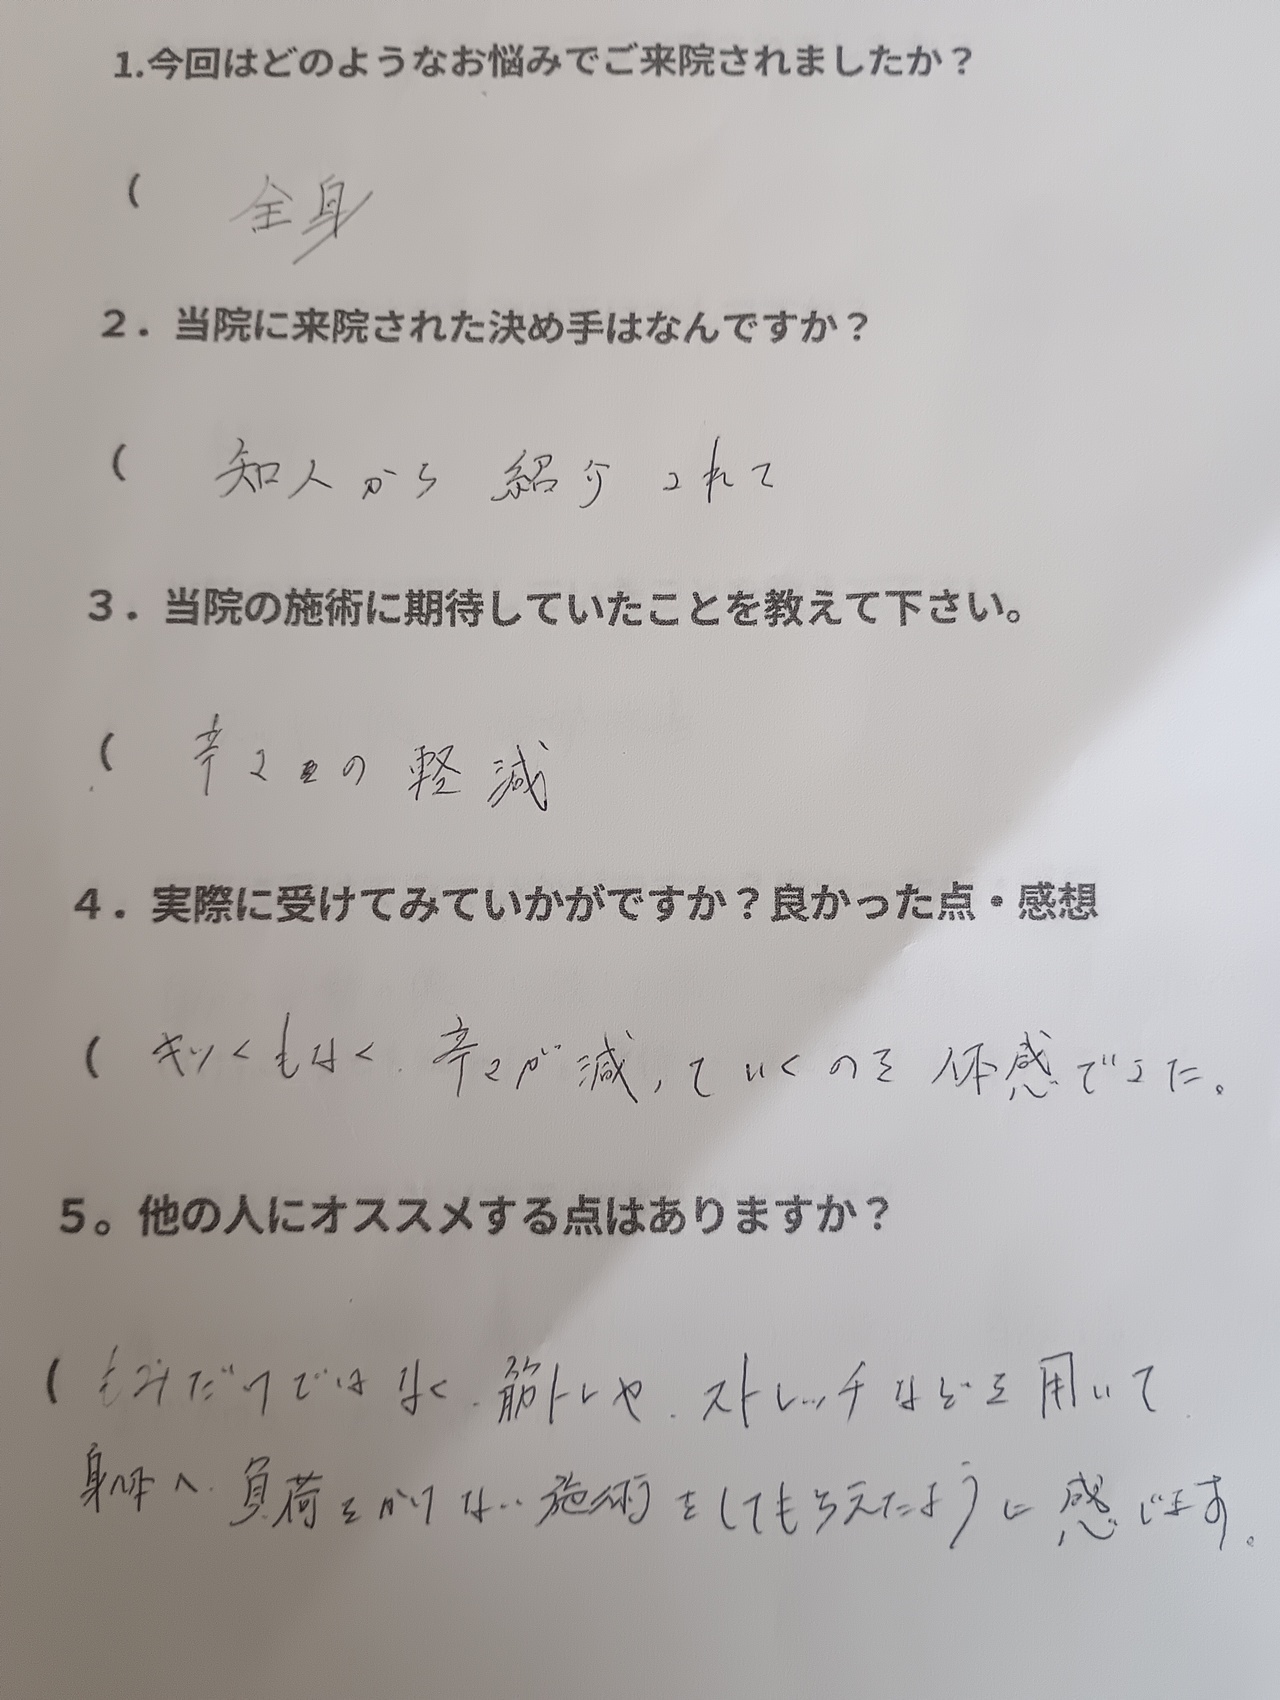 1.今回はどのようなお悩みでご来院されましたか？
( 全身
２．当院に来院された決め手はなんですか？
( 知人から 紹介 されて
３．当院の施術に期待していたことを教えて下さい。
( 辛さの 軽減
４．実際に受けてみていかがですか？良かった点・感想
( キツくもなく、辛さが減っていくのを 体感できた。
５。他の人にオススメする点はありますか？
( もみだけではなく、筋トレや、ストレッチなどを用いて、
身体へ、負荷をかけない施術をしてもらえたように感じます。